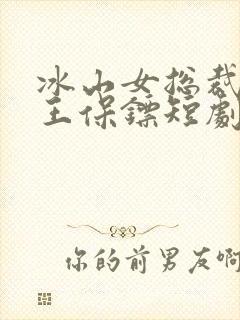 冰山女总裁
王保镖短劇
你的前男友啊